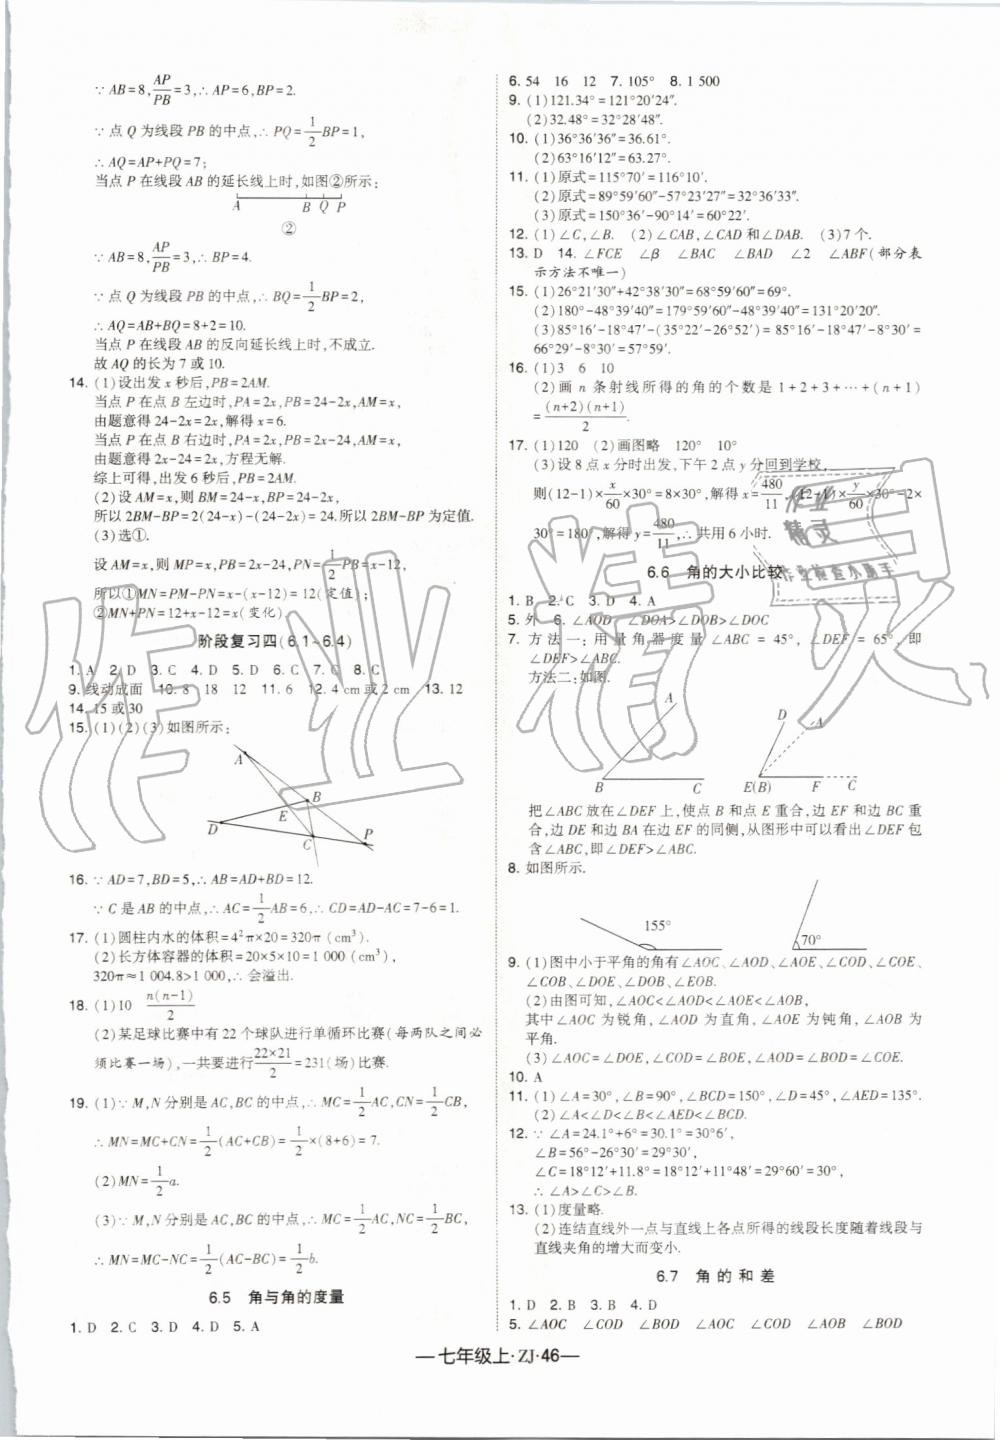 ∵ AB=8, AP/PB=3,∴ AP=6,BP=2.
∵ 点 Q 为线段 PB 的中点,∴ PQ=1/2BP=1,
∴ AQ=AP+PQ=7;
当点 P 在线段 AB 的延长线上时,如图②所示:
A B Q P
②
∵ AB=8, AP/PB=3,∴ BP=4.
∵ 点 Q 为线段 PB 的中点,∴ BQ=1/2BP=2,
∴ AQ=AB+BQ=8+2=10.
当点 P 在线段 AB 的反向延长线上时,不成立.
故 AQ 的长为 7 或 10.
14. (1)设出发 x 秒后,PB=2AM.
当点 P 在点 B 左边时,PA=2x,PB=24-2x,AM=x,
由题意得 24-2x=2x,解得 x=6.
当点 P 在点 B 右边时,PA=2x,PB=2x-24,AM=x,
由题意得 2x-24=2x,方程无解.
综上可得,出发 6 秒后,PB=2AM.
(2)设 AM=x,则 BM=24-x,BP=24-2x,
所以 2BM-BP=2(24-x)-(24-2x)=24.所以 2BM-BP 为定值.
(3)选①.
设 AM=x,则 MP=x,PB=2x-24,PN=1/2PB=x-12,
所以①MN=PM-PN=x-(x-12)=12(定值);
②MN+PN=12+x-12=x(变化).
阶段复习四(6.1~6.4)
1. A 2. D 3. C 4. D 5. D 6. C 7. C 8. C
9. 线动成面 10. 8 18 12 11. 6 12. 4 cm 或 2 cm 13. 12
14. 15 或 30
15. (1)(2)(3)如图所示:
A
B
E
D
C
P
16. ∵ AD=7,BD=5,∴ AB=AD+BD=12.
∵ C 是 AB 的中点,∴ AC=1/2AB=6,∴ CD=AD-AC=7-6=1.
17. (1)圆柱内水的体积=4²π×20=320π(cm³).
(2)长方体容器的体积=20×5×10=1 000(cm³),
320π≈1 004.8>1 000,∴ 会溢出.
18. (1)10 n(n-1)/2
(2)某足球比赛中有 22 个球队进行单循环比赛(每两队之间必
须比赛一场),一共要进行22×21/2=231(场)比赛.
19. (1)∵ M,N 分别是 AC,BC 的中点,∴ MC=1/2AC,CN=1/2CB,
∴ MN=MC+CN=1/2(AC+CB)=1/2×(8+6)=7.
(2)MN=1/2a.
(3)∵ M,N 分别是 AC,BC 的中点,∴ MC=1/2AC,NC=1/2BC,
∴ MN=MC-NC=1/2(AC-BC)=1/2b.
6.5 角与角的度量
1. D 2. C 3. D 4. D 5. A
6. 54 16 12 7. 105° 8. 1 500
9. (1)121.34°=121°20′24″.
(2)32.48°=32°28′48″.
10. (1)36°36′36″=36.61°.
(2)63°16′12″=63.27°.
11. (1)原式=115°70′=116°10′.
(2)原式=89°59′60″-57°23′27″=32°36′33″.
(3)原式=150°36′-90°14′=60°22′.
12. (1)∠C,∠B. (2)∠CAB,∠CAD 和∠DAB. (3)7 个.
13. D 14. ∠FCE ∠β ∠BAC ∠BAD ∠2 ∠ABF(部分表
示方法不唯一)
15. (1)26°21′30″+42°38′30″=68°59′60″=69°.
(2)180°-48°39′40″=179°59′60″-48°39′40″=131°20′20″.
(3)85°16′-18°47′-(35°22′-26°52′)=85°16′-18°47′-8°30′=
66°29′-8°30′=57°59′.
16. (1)3 6 10
(2)画 n 条射线所得的角的个数是 1+2+3+⋯+(n+1)
=(n+2)(n+1)/2.
17. (1)120 (2)画图略 120° 10°
(3)设 8 点 x 分时出发,下午 2 点 y 分回到学校,
则(12-1)×x/60×30°=8×30°,解得 x=480/11,(12-1)×y/60×30°-2×
30°=180°,解得 y=480/11,∴ 共用 6 小时.
6.6 角的大小比较
1. B 2. C 3. D 4. A
5. 外 6. ∠AOD ∠DOA>∠DOB>∠DOC
7. 方法一:用量角器度量∠ABC=45°,∠DEF=65°,即
∠DEF>∠ABC.
方法二:如图.
A
B C
D A
E(B) F C
把∠ABC 放在∠DEF 上,使点 B 和点 E 重合,边 EF 和边 BC 重
合,边 DE 和边 BA 在边 EF 的同侧,从图形中可以看出∠DEF 包
含∠ABC,即∠DEF>∠ABC.
8. 如图所示.
155°
70°
9. (1)图中小于平角的角有∠AOC、∠AOD、∠AOE、∠COD、∠COE、
∠COB、∠DOE、∠DOB、∠EOB.
(2)由图可知,∠AOC<∠AOD<∠AOE<∠AOB,
其中∠AOC 为锐角,∠AOD 为直角,∠AOE 为钝角,∠AOB 为
平角.
(3)∠AOC=∠DOE,∠COD=∠BOE,∠AOD=∠BOD=∠COE.
10. A
11. (1)∠A=30°,∠B=90°,∠BCD=150°,∠D=45°,∠AED=135°.
(2)∠A<∠D<∠B<∠AED<∠BCD.
12. ∵ ∠A=24.1°+6°=30.1°=30°6′,
∠B=56°-26°30′=29°30′,
∠C=18°12′+11.8°=18°12′+11°48′=29°60′=30°,
∴ ∠A>∠C>∠B.
13. (1)度量略.
(2)连结直线外一点与直线上各点所得的线段长度随着线段与
直线夹角的增大而变小.
6.7 角的和差
1. D 2. B 3. B 4. D
5. ∠AOC ∠COD ∠BOD ∠AOC ∠COD ∠AOB ∠BOD
—七年级上·ZJ·46—
作业精灵
作业
精灵
作业检查小助手